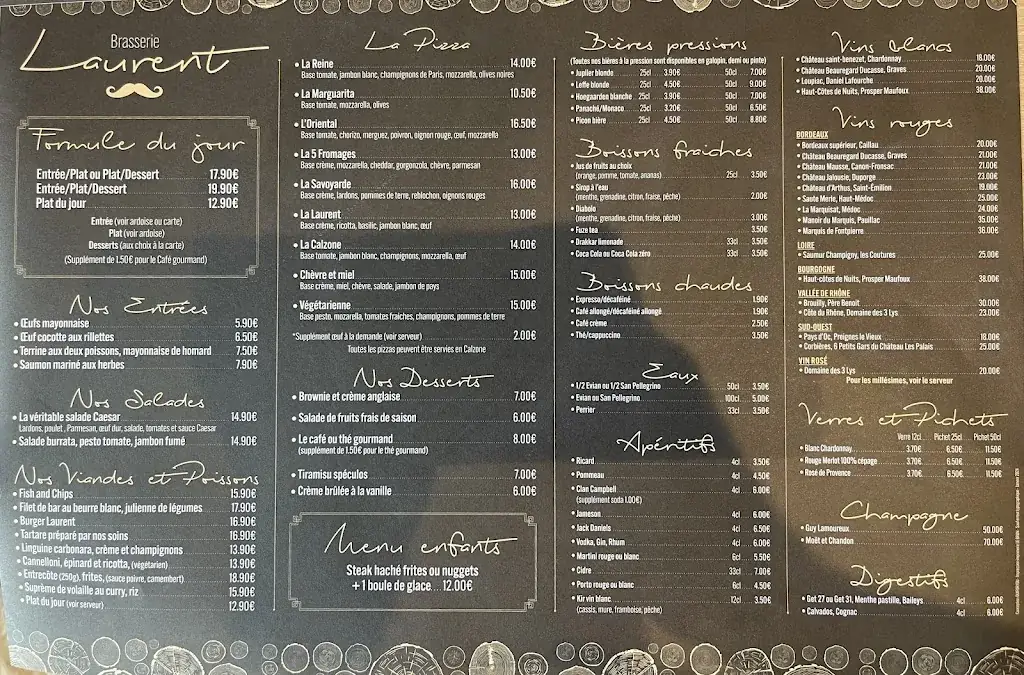 Brasserie
Laurent
Formule du jour
Entrée/Plat ou Plat/Dessert 17.90€
Entrée/Plat/Dessert 19.90€
Plat du jour 12.90€
Entrée (voir ardoise ou carte)
Plat (voir ardoise)
Desserts (aux choix à la carte)
(Supplément de 1.50€ pour le Café gourmand)
Nos Entrées
• Œufs mayonnaise 5.90€
• Œuf cocotte aux rillettes 6.50€
• Terrine aux deux poissons, mayonnaise de homard 7.50€
• Saumon mariné aux herbes 7.90€
Nos Salades
• La véritable salade Caesar 14.90€
Lardons, poulet, Parmesan, œuf dur, salade, tomates et sauce Caesar
• Salade burrata, pesto tomate, jambon fumé 14.90€
Nos Viandes et Poissons
• Fish and Chips 15.90€
• Filet de bar au beurre blanc, julienne de légumes 17.90€
• Burger Laurent 16.90€
• Tartare préparé par nos soins 16.90€
• Linguine carbonara, crème et champignons 13.90€
• Cannelloni, épinard et ricotta, (végétarien) 13.90€
• Entrecôte (250g), frites, (sauce poivre, camembert) 18.90€
• Suprême de volaille au curry, riz 15.90€
• Plat du jour (voir serveur) 12.90€
La Pizza
• La Reine 14.00€
Base tomate, jambon blanc, champignons de Paris, mozzarella, olives noires
• La Marguarita 10.50€
Base tomate, mozzarella, olives
• L'Oriental 16.50€
Base tomate, chorizo, merguez, poivron, oignon rouge, œuf, mozzarella
• La 5 Fromages 13.00€
Base crème, mozzarella, cheddar, gorgonzola, chèvre, parmesan
• La Savoyarde 16.00€
Base crème, lardons, pommes de terre, reblochon, oignons rouges
• La Laurent 13.00€
Base crème, ricotta, basilic, jambon blanc, œuf
• La Calzone 14.00€
Base tomate, jambon blanc, champignons, mozzarella, œuf
• Chèvre et miel 15.00€
Base crème, miel, chèvre, salade, jambon de pays
• Végétarienne 15.00€
Base pesto, mozarella, tomates fraiches, champignons, pommes de terre
*Supplément œuf à la demande (voir serveur) 2.00€
Toutes les pizzas peuvent être servies en Calzone
Nos Desserts
• Brownie et crème anglaise 7.00€
• Salade de fruits frais de saison 6.00€
• Le café ou thé gourmand 8.00€
(supplément de 1.50€ pour le thé gourmand)
• Tiramisu spéculos 7.00€
• Crème brûlée à la vanille 6.00€
Menu enfants
Steak haché frites ou nuggets
+ 1 boule de glace 12.00€
Bières pressions
(Toutes nos bières à la pression sont disponibles en galopin, demi ou pinte)
• Jupiler blonde 25cl 3.90€ 50cl 7.00€
• Leffe blonde 25cl 4.50€ 50cl 9.00€
• Hoegaarden blanche 25cl 3.90€ 50cl 7.00€
• Panaché/Monaco 25cl 3.20€ 50cl 6.50€
• Picon bière 25cl 4.50€ 50cl 8.80€
Boissons fraiches
• Jus de fruits au choix
(orange, pomme, tomate, ananas) 25cl 3.50€
• Sirop à l'eau
(menthe, grenadine, citron, fraise, pêche) 2.00€
• Diabolo
(menthe, grenadine, citron, fraise, pêche) 3.00€
• Fuze tea 3.50€
• Drakkar limonade 33cl 3.50€
• Coca Cola ou Coca Cola zéro 33cl 3.50€
Boissons chaudes
• Expresso/décaféiné 1.90€
• Café allongé/décaféiné allongé 1.90€
• Café crème 2.50€
• Thé/cappuccino 3.50€
Eaux
• 1/2 Evian ou 1/2 San Pellegrino 50cl 3.50€
• Evian ou San Pellegrino 100cl 5.00€
• Perrier 33cl 3.50€
Apéritifs
• Ricard 4cl 3.50€
• Pommeau 4cl 4.50€
• Clan Campbell 4cl 6.00€
(supplément soda 1.00€)
• Jameson 4cl 6.00€
• Jack Daniels 4cl 6.50€
• Vodka, Gin, Rhum 4cl 6.00€
• Martini rouge ou blanc 6cl 5.50€
• Cidre 33cl 7.00€
• Porto rouge ou blanc 6cl 4.50€
• Kir vin blanc 12cl 3.50€
(cassis, mure, framboise, pêche)
Vins blancs
• Château saint-benezet, Chardonnay 18.00€
• Château Beauregard Ducasse, Graves 20.00€
• Loupiac, Daniel Lafourche 20.00€
• Haut-Côtes de Nuits, Prosper Maufoux 38.00€
Vins rouges
BORDEAUX
• Bordeaux supérieur, Caillau 20.00€
• Château Beauregard Ducasse, Graves 21.00€
• Château Mausse, Canon-Fronsac 21.00€
• Château Jalousie, Duporge 23.00€
• Château d'Arthus, Saint-Émilion 19.00€
• Saute Merie, Haut-Médoc 25.00€
• La Marquisat, Médoc 24.00€
• Manoir du Marquis, Pauillac 35.00€
• Marquis de Fontpierre 38.00€
LOIRE
• Saumur Champigny, les Coutures 25.00€
BOURGOGNE
• Haut-côtes de Nuits, Prosper Maufoux 38.00€
VALLÉE DE RHÔNE
• Brouilly, Père Benoit 30.00€
• Côte du Rhône, Domaine des 3 Lys 23.00€
SUD-OUEST
• Pays d'Oc, Preignes le Vieux 18.00€
• Corbières, 6 Petits Gars du Château Les Palais 25.00€
VIN ROSÉ
• Domaine des 3 Lys 20.00€
Pour les millésimes, voir le serveur
Verres et Pichets
Verre 12cl Pichet 25cl Pichet 50cl
• Blanc Chardonnay 3.70€ 6.50€ 11.50€
• Rouge Merlot 100% cépage 3.70€ 6.50€ 11.50€
• Rosé de Provence 3.70€ 6.50€ 11.50€
Champagne
• Guy Lamoureux 50.00€
• Moët et Chandon 70.00€
Digestifs
• Get 27 ou Get 31, Menthe pastille, Baileys 4cl 6.00€
• Calvados, Cognac 4cl 6.00€